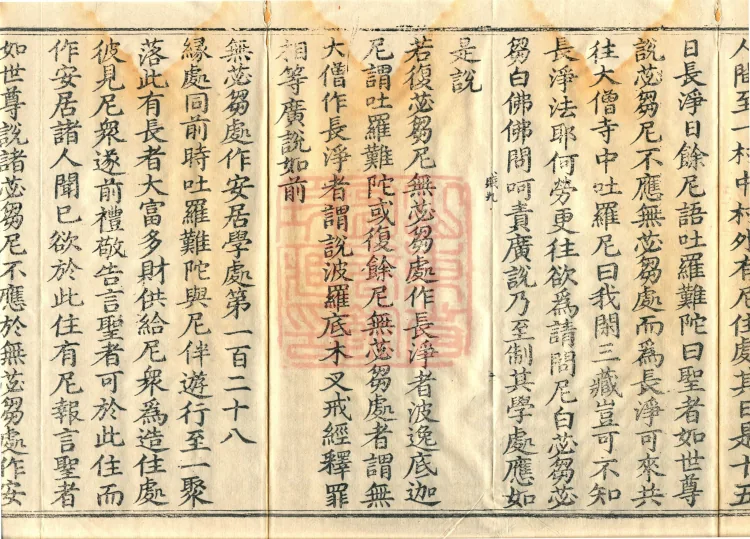 人間至一村中村外有尼住處其日是十五
日長淨日餘尼語吐羅難陀曰聖者如世尊
說苾芻尼不應無苾芻處而爲長淨可來共
往大僧寺中吐羅尼曰我閑三藏豈可不知
長淨法耶何勞更往欲爲請問尼白苾芻苾
芻白佛佛問呵責廣說乃至制其學處應如
是說
若復苾芻尼無苾芻處作長淨者波逸底迦
尼謂吐羅難陀或復餘尼無苾芻處者謂無
大僧作長淨者謂說波羅底木叉戒經釋罪
相等廣說如前
無苾芻處作安居學處第一百二十八
緣處同前時吐羅難陀與尼伴遊行至一聚
落此有長者大富多財供給尼衆爲造住處
彼見尼衆遂前禮敬告言聖者可於此住而
作安居諸人聞已欲於此住有尼報言聖者
如世尊說諸苾芻尼不應於無苾芻處作安